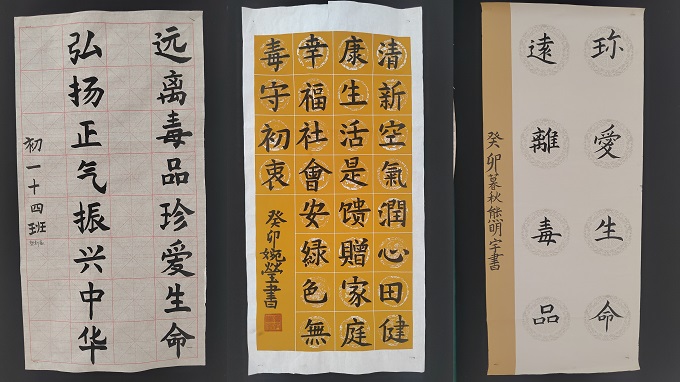 远离毒品珍爱生命
弘扬正气振兴中华
初一十四班
清新空氣潤心田健
康生活是馈赠家庭
幸福社會安緑色無
毒守初衷
癸卯婉瑩書
珎愛生命
遠離毒品
癸卯暮秋熊明字書